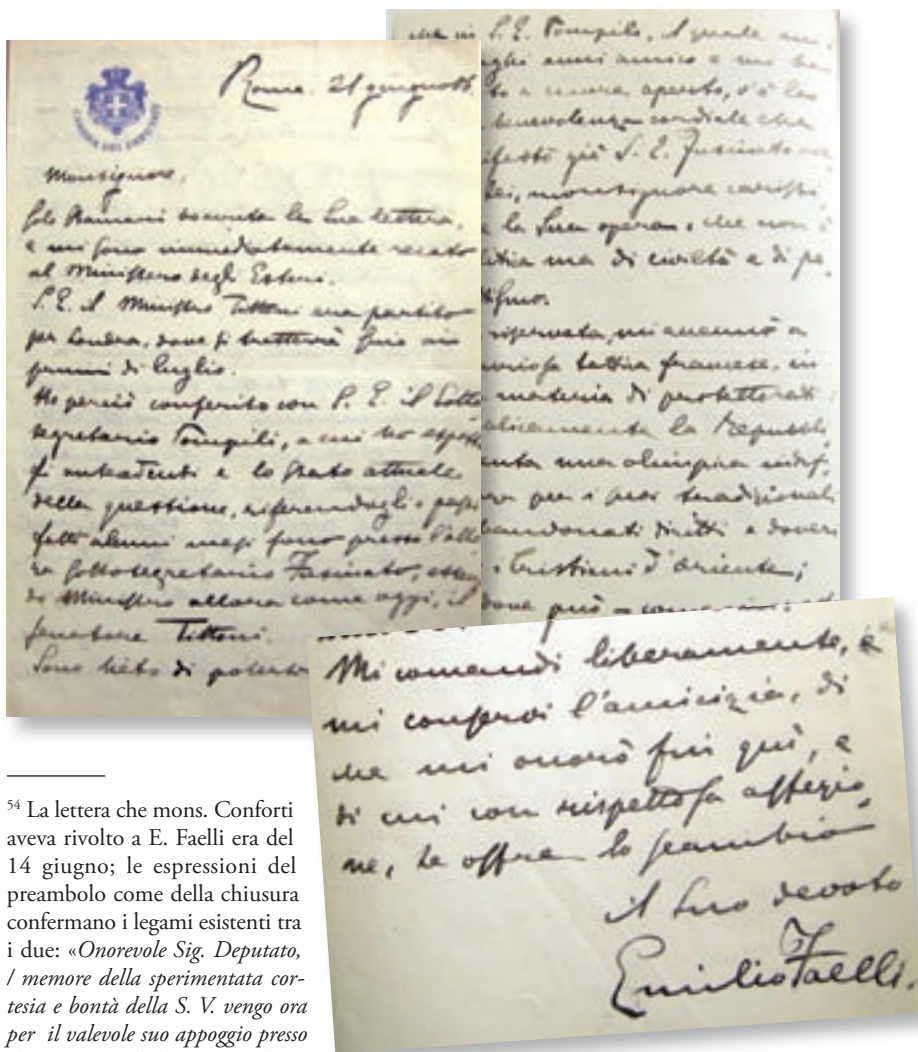 CAMERA DEI DEPUTATI
Roma. 21 giugno
Monsignore,
Solo stamani la Sua lettera,
e mi sono immediatamente recato
al Ministero degli Esteri.
S. E. il Ministro Tittoni era partito
per Londra, dove si tratterrà fino ai
primi di luglio.
Ho perciò conferito con S. E. il Sotto
segretario Pompili, a cui ho espos
gli antecedenti e lo stato attuale
della questione, riferendogli i passi
fatti alcuni mesi sono presso l'allo
ra sottosegretario Fusinato, essen
do Ministro allora come oggi, il
senatore Tittoni.
Sono lieto di poter
che in S. E. Pompili, il quale
anni amico e mi
to a cuore aperto, v'è la
benevolenza cordiale che
ifestò già S. E. Fusinato
lei, monsignore
e la Sua opera, che non è
ma di civiltà e di pa
riservata, mi accennò a
tattica francese, in
materia di protettorati
la Repubbli
enta una olimpica indif,
za per i suoi tradizionali
bandonati diritti e doveri
i Cristiani d'oriente;
dove può
Mi comandi liberamente, e
mi conservi l'amicizia, di
che mi onorò fin quì, e
di cui con rispettosa affezio
ne, Le offro lo scambio
il Suo devoto
Emilio Faelli.
54 La lettera che mons. Conforti
aveva rivolto a E. Faelli era del
14 giugno; le espressioni del
preambolo come della chiusura
confermano i legami esistenti tra
i due: «Onorevole Sig. Deputato,
/ memore della sperimentata cor-
tesia e bontà della S. V. vengo ora
per il valevole suo appoggio presso